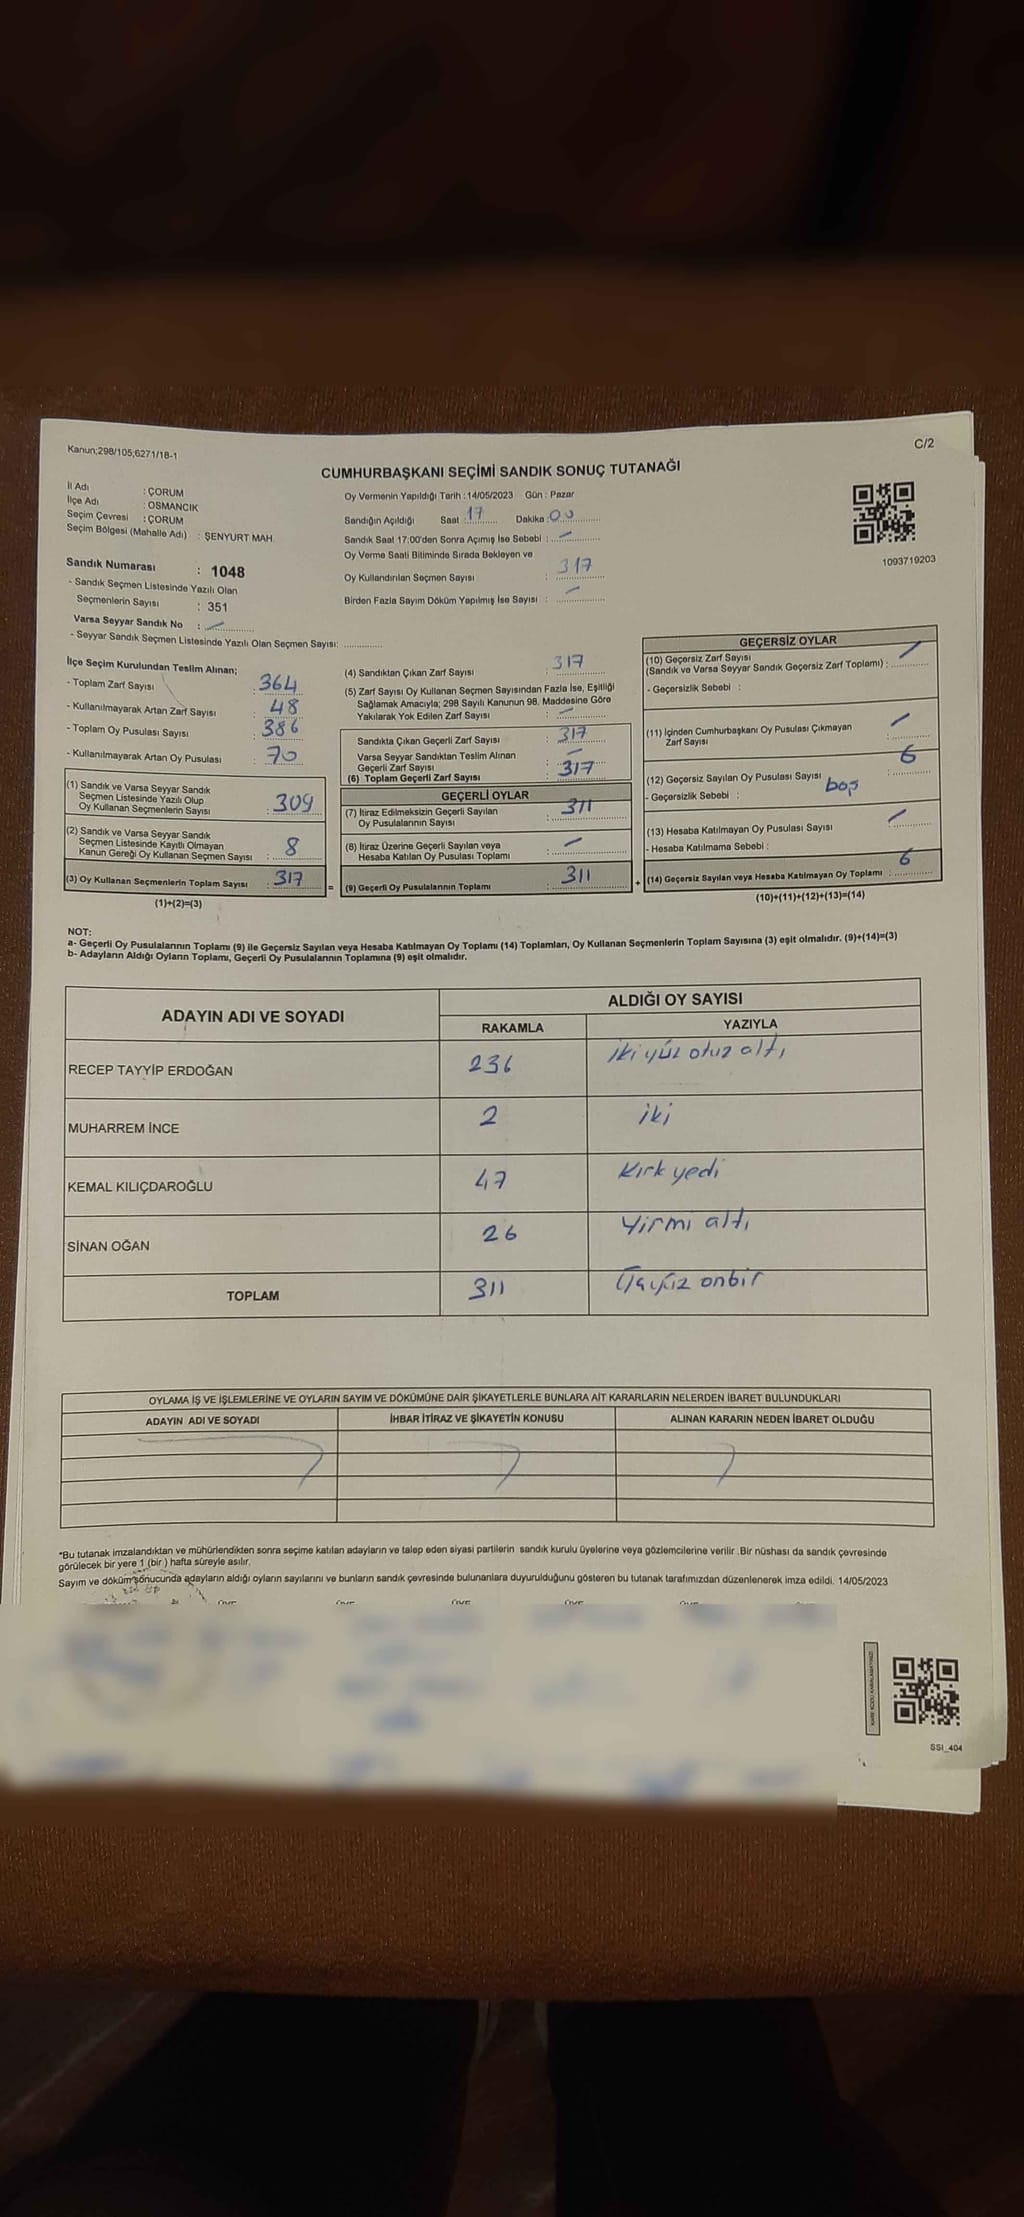 Kanun;298/105,6271/18-1
C/2
CUMHURBAŞKANI SEÇİMİ SANDIK SONUÇ TUTANAĞI
İl Adı : ÇORUM
İlçe Adı : OSMANCIK
Seçim Çevresi : ÇORUM
Seçim Bölgesi (Mahalle Adı) : ŞENYURT MAH.
Sandık Numarası : 1048
- Sandık Seçmen Listesinde Yazılı Olan
Seçmenlerin Sayısı : 351
Varsa Seyyar Sandık No :
- Seyyar Sandık Seçmen Listesinde Yazılı Olan Seçmen Sayısı:
Oy Vermenin Yapıldığı Tarih : 14/05/2023 Gün : Pazar
Sandığın Açıldığı Saat 17 Dakika : 00
Sandık Saat 17:00'den Sonra Açımış İse Sebebi :
Oy Verme Saati Bitiminde Sırada Bekleyen ve
Oy Kullandırılan Seçmen Sayısı : 317
Birden Fazla Sayım Döküm Yapılmış İse Sayısı :
1093719203
İlçe Seçim Kurulundan Teslim Alınan;
- Toplam Zarf Sayısı : 364
- Kullanılmayarak Artan Zarf Sayısı : 48
- Toplam Oy Pusulası Sayısı : 386
- Kullanılmayarak Artan Oy Pusulası : 70
(1) Sandık ve Varsa Seyyar Sandık
Seçmen Listesinde Yazılı Olup
Oy Kullanan Seçmenlerin Sayısı : 309
(2) Sandık ve Varsa Seyyar Sandık
Seçmen Listesinde Kayıtlı Olmayan
Kanun Gereği Oy Kullanan Seçmen Sayısı : 8
(3) Oy Kullanan Seçmenlerin Toplam Sayısı : 317
(1)+(2)=(3)
(4) Sandıktan Çıkan Zarf Sayısı : 317
(5) Zarf Sayısı Oy Kullanan Seçmen Sayısından Fazla İse, Eşitliği
Sağlamak Amacıyla; 298 Sayılı Kanunun 98. Maddesine Göre
Yakılarak Yok Edilen Zarf Sayısı :
Sandıkta Çıkan Geçerli Zarf Sayısı : 317
Varsa Seyyar Sandıktan Teslim Alınan
Geçerli Zarf Sayısı :
(6) Toplam Geçerli Zarf Sayısı : 317
GEÇERLİ OYLAR
(7) İtiraz Edilmeksizin Geçerli Sayılan
Oy Pusulalarının Sayısı : 311
(8) İtiraz Üzerine Geçerli Sayılan veya
Hesaba Katılan Oy Pusulası Toplamı :
= (9) Geçerli Oy Pusulalarının Toplamı : 311
GEÇERSİZ OYLAR
(10) Geçersiz Zarf Sayısı
(Sandık ve Varsa Seyyar Sandık Geçersiz Zarf Toplamı) :
- Geçersizlik Sebebi :
(11) İçinden Cumhurbaşkanı Oy Pusulası Çıkmayan
Zarf Sayısı :
(12) Geçersiz Sayılan Oy Pusulası Sayısı : 6
- Geçersizlik Sebebi : boş
(13) Hesaba Katılmayan Oy Pusulası Sayısı :
- Hesaba Katılmama Sebebi :
+ (14) Geçersiz Sayılan veya Hesaba Katılmayan Oy Toplamı : 6
(10)+(11)+(12)+(13)=(14)
NOT:
a- Geçerli Oy Pusulalarının Toplamı (9) ile Geçersiz Sayılan veya Hesaba Katılmayan Oy Toplamı (14) Toplamları, Oy Kullanan Seçmenlerin Toplam Sayısına (3) eşit olmalıdır. (9)+(14)=(3)
b- Adayların Aldığı Oyların Toplamı, Geçerli Oy Pusulalarının Toplamına (9) eşit olmalıdır.
ADAYIN ADI VE SOYADI
ALDIĞI OY SAYISI
RAKAMLA YAZIYLA
RECEP TAYYİP ERDOĞAN 236 iki yüz otuz altı
MUHARREM İNCE 2 iki
KEMAL KILIÇDAROĞLU 47 Kırk yedi
SİNAN OĞAN 26 Yirmi altı
TOPLAM 311 Üçyüz onbir
OYLAMA İŞ VE İŞLEMLERİNE VE OYLARIN SAYIM VE DÖKÜMÜNE DAİR ŞİKAYETLERLE BUNLARA AİT KARARLARIN NELERDEN İBARET BULUNDUKLARI
ADAYIN ADI VE SOYADI İHBAR İTİRAZ VE ŞİKAYETİN KONUSU ALINAN KARARIN NEDEN İBARET OLDUĞU
*Bu tutanak imzalandıktan ve mühürlendikten sonra seçime katılan adayların ve talep eden siyasi partilerin sandık kurulu üyelerine veya gözlemcilerine verilir. Bir nüshası da sandık çevresinde
görülecek bir yere 1 (bir ) hafta süreyle asılır.
Sayım ve döküm sonucunda adayların aldığı oyların sayılarını ve bunların sandık çevresinde bulunanlara duyurulduğunu gösteren bu tutanak tarafımızdan düzenlenerek imza edildi. 14/05/2023
SSI_404